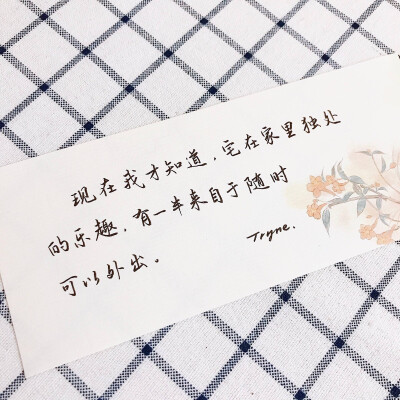 现在我才知道，宅在家里独处
的乐趣，有一半来自于随时
可以外出。
Tryne.